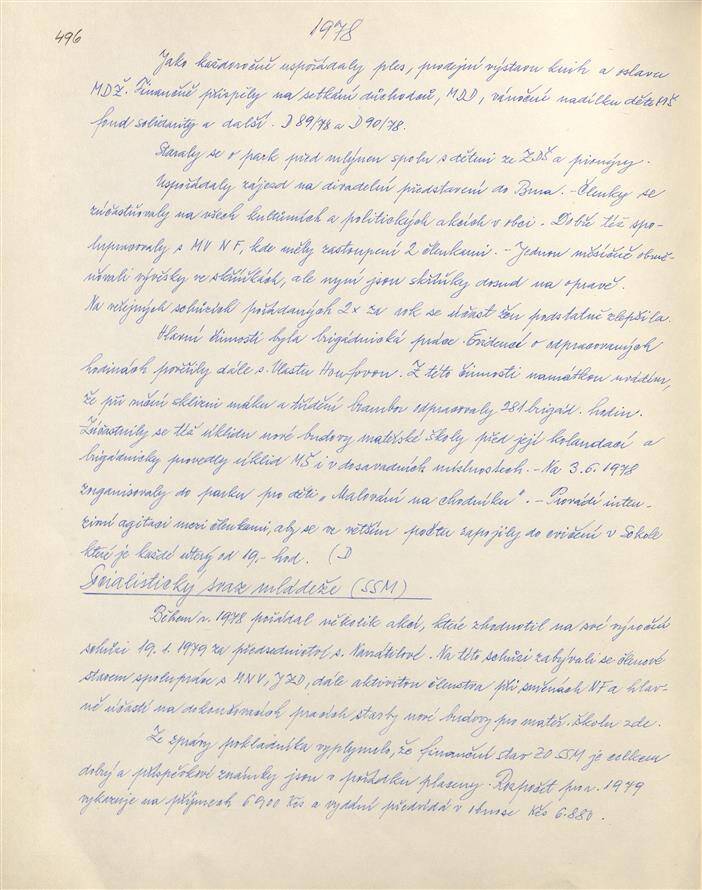 496
1978
Jako každoročně uspořádaly ples, prodejní výstavu knih a oslavu
MDŽ. Finančně přispěly na setkání důchodců, MDD, vánoční nadílku děte MŠ
fond solidarity a další. D 89/78 a D 90/78.
Staraly se o park před mlýnem spolu s dětmi ze ZDŠ a pionýry.
Uspořádaly zájezd na divadelní představení do Brna. - Členky se
zúčastňovaly na všech kulturních a politických akcích v obci. - Dobře též spo-
lupracovaly s MV NF, kde měly zastoupení 2 členkami. - Jednou měsíčně obmě-
ňovali vývěsky ve skříňkách, ale nyní jsou skříňky dosud na opravě.
Na veřejných schůzích pořádaných 2x za rok se účast žen podstatně zlepšila.
Hlavní činností byla brigádnická práce. Evidencí o odpracovaných
hodinách pověřily dále s. Vlastu . Z této činnosti namátkou uvádím,
že při ruční sklizni máku a třídění brambor odpracovaly 281 brigád. hodin.
Zúčastnily se též úklidu nové budovy mateřské školy před její kolaudací a
brigádnicky provedly úklid MŠ i v dosavadních místnostech. - Na 3.6.1978
zorganisovaly do parku pro děti „Malování na chodníku". - Provádí inten-
zivní agitaci mezi členkami, aby se ve větším počtu zapojily do cvičení v Sokole
které je každé úterý od 19,- hod. (D
Socialistický svaz mládeže (SSM)
Během r. 1978 pořádal několik akcí, které zhodnotil na své výroční
schůzi 19.1.1979 za předsednictví s. Navrátilové. Na této schůzi zabývali se členové
stavem spolupráce s MNV, JZD, dále aktivitou členstva při směnách NF a hlav-
ně účastí na dokončovacích pracích stavby nové budovy pro mateř. školu zde.
Ze zprávy pokladníka vyplynulo, že finanční stav ZO SSM je celkem
dobrý a příspěvkové známky jsou v pořádku placeny. Rozpočet pro r. 1979
vykazuje na příjmech 6900 Kčs a vydání předvídá v obnose Kčs 6.880.